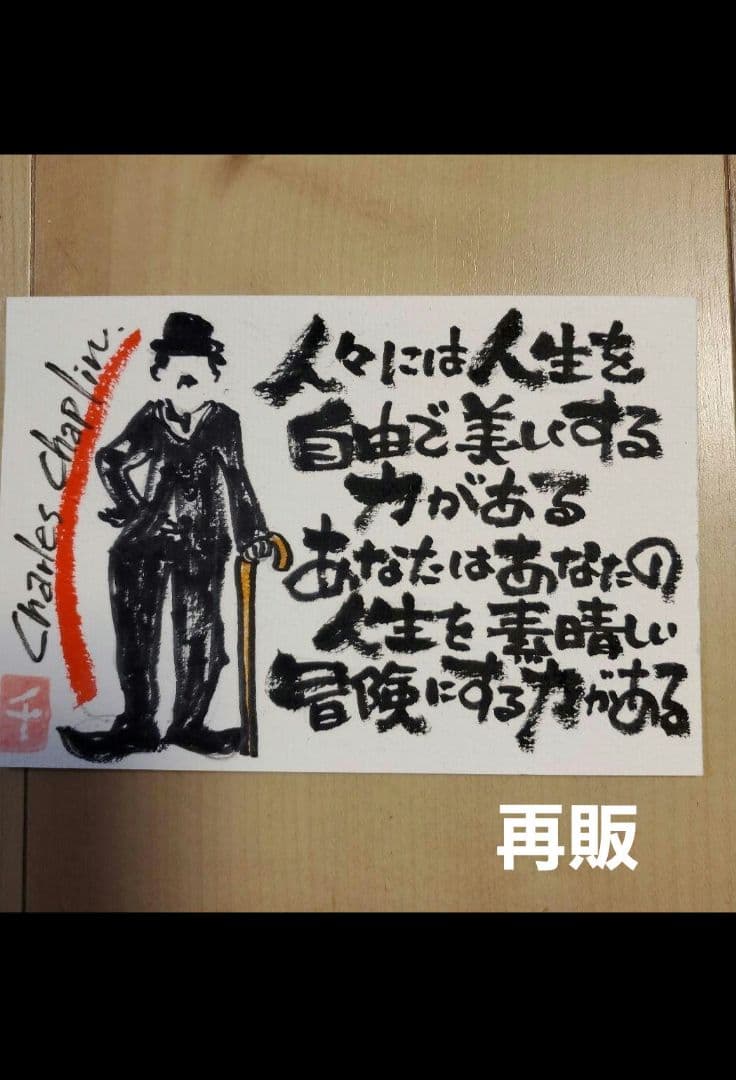 Charles Chaplin.
人々には人生を
自由で美いする
力がある
あなたはあなたの
人生を素晴しい
冒険にする力がある
千
再販